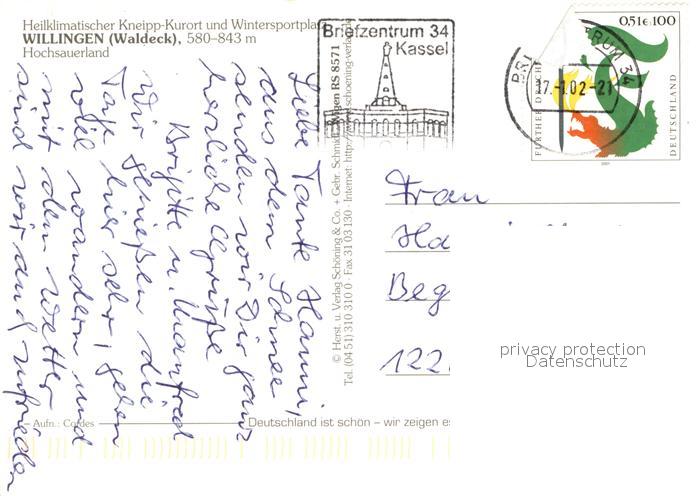 Heilklimatischer Kneipp-Kurort und Wintersportplatz
WILLINGEN (Waldeck), 580–843 m
Hochsauerland
Briefzentrum 34
Kassel
0,51€ 100
17.-1.02-21
FÜRTHER DRACH
DEUTSCHLAND
2001
Liebe Tante Hanni,
aus dem Schnee
senden wir Dir ganz
herzliche Grüße
Brigitte u. Manfred
Wir genießen die
Tage hier sehr, gehen
viel wandern und
mit dem Wetter
sind wir auch zufrieden
© Herst. u. Verlag Schöning & Co. + Gebr. Schmidt
Tel. (04 51) 310 310 0 · Fax 31 03 130 · Internet: http://www.schoening-verlag.de
RS 8571
Frau
Ha
Beg
122
privacy protection
Datenschutz
Aufn.: Cordes
Deutschland ist schön – wir zeigen es